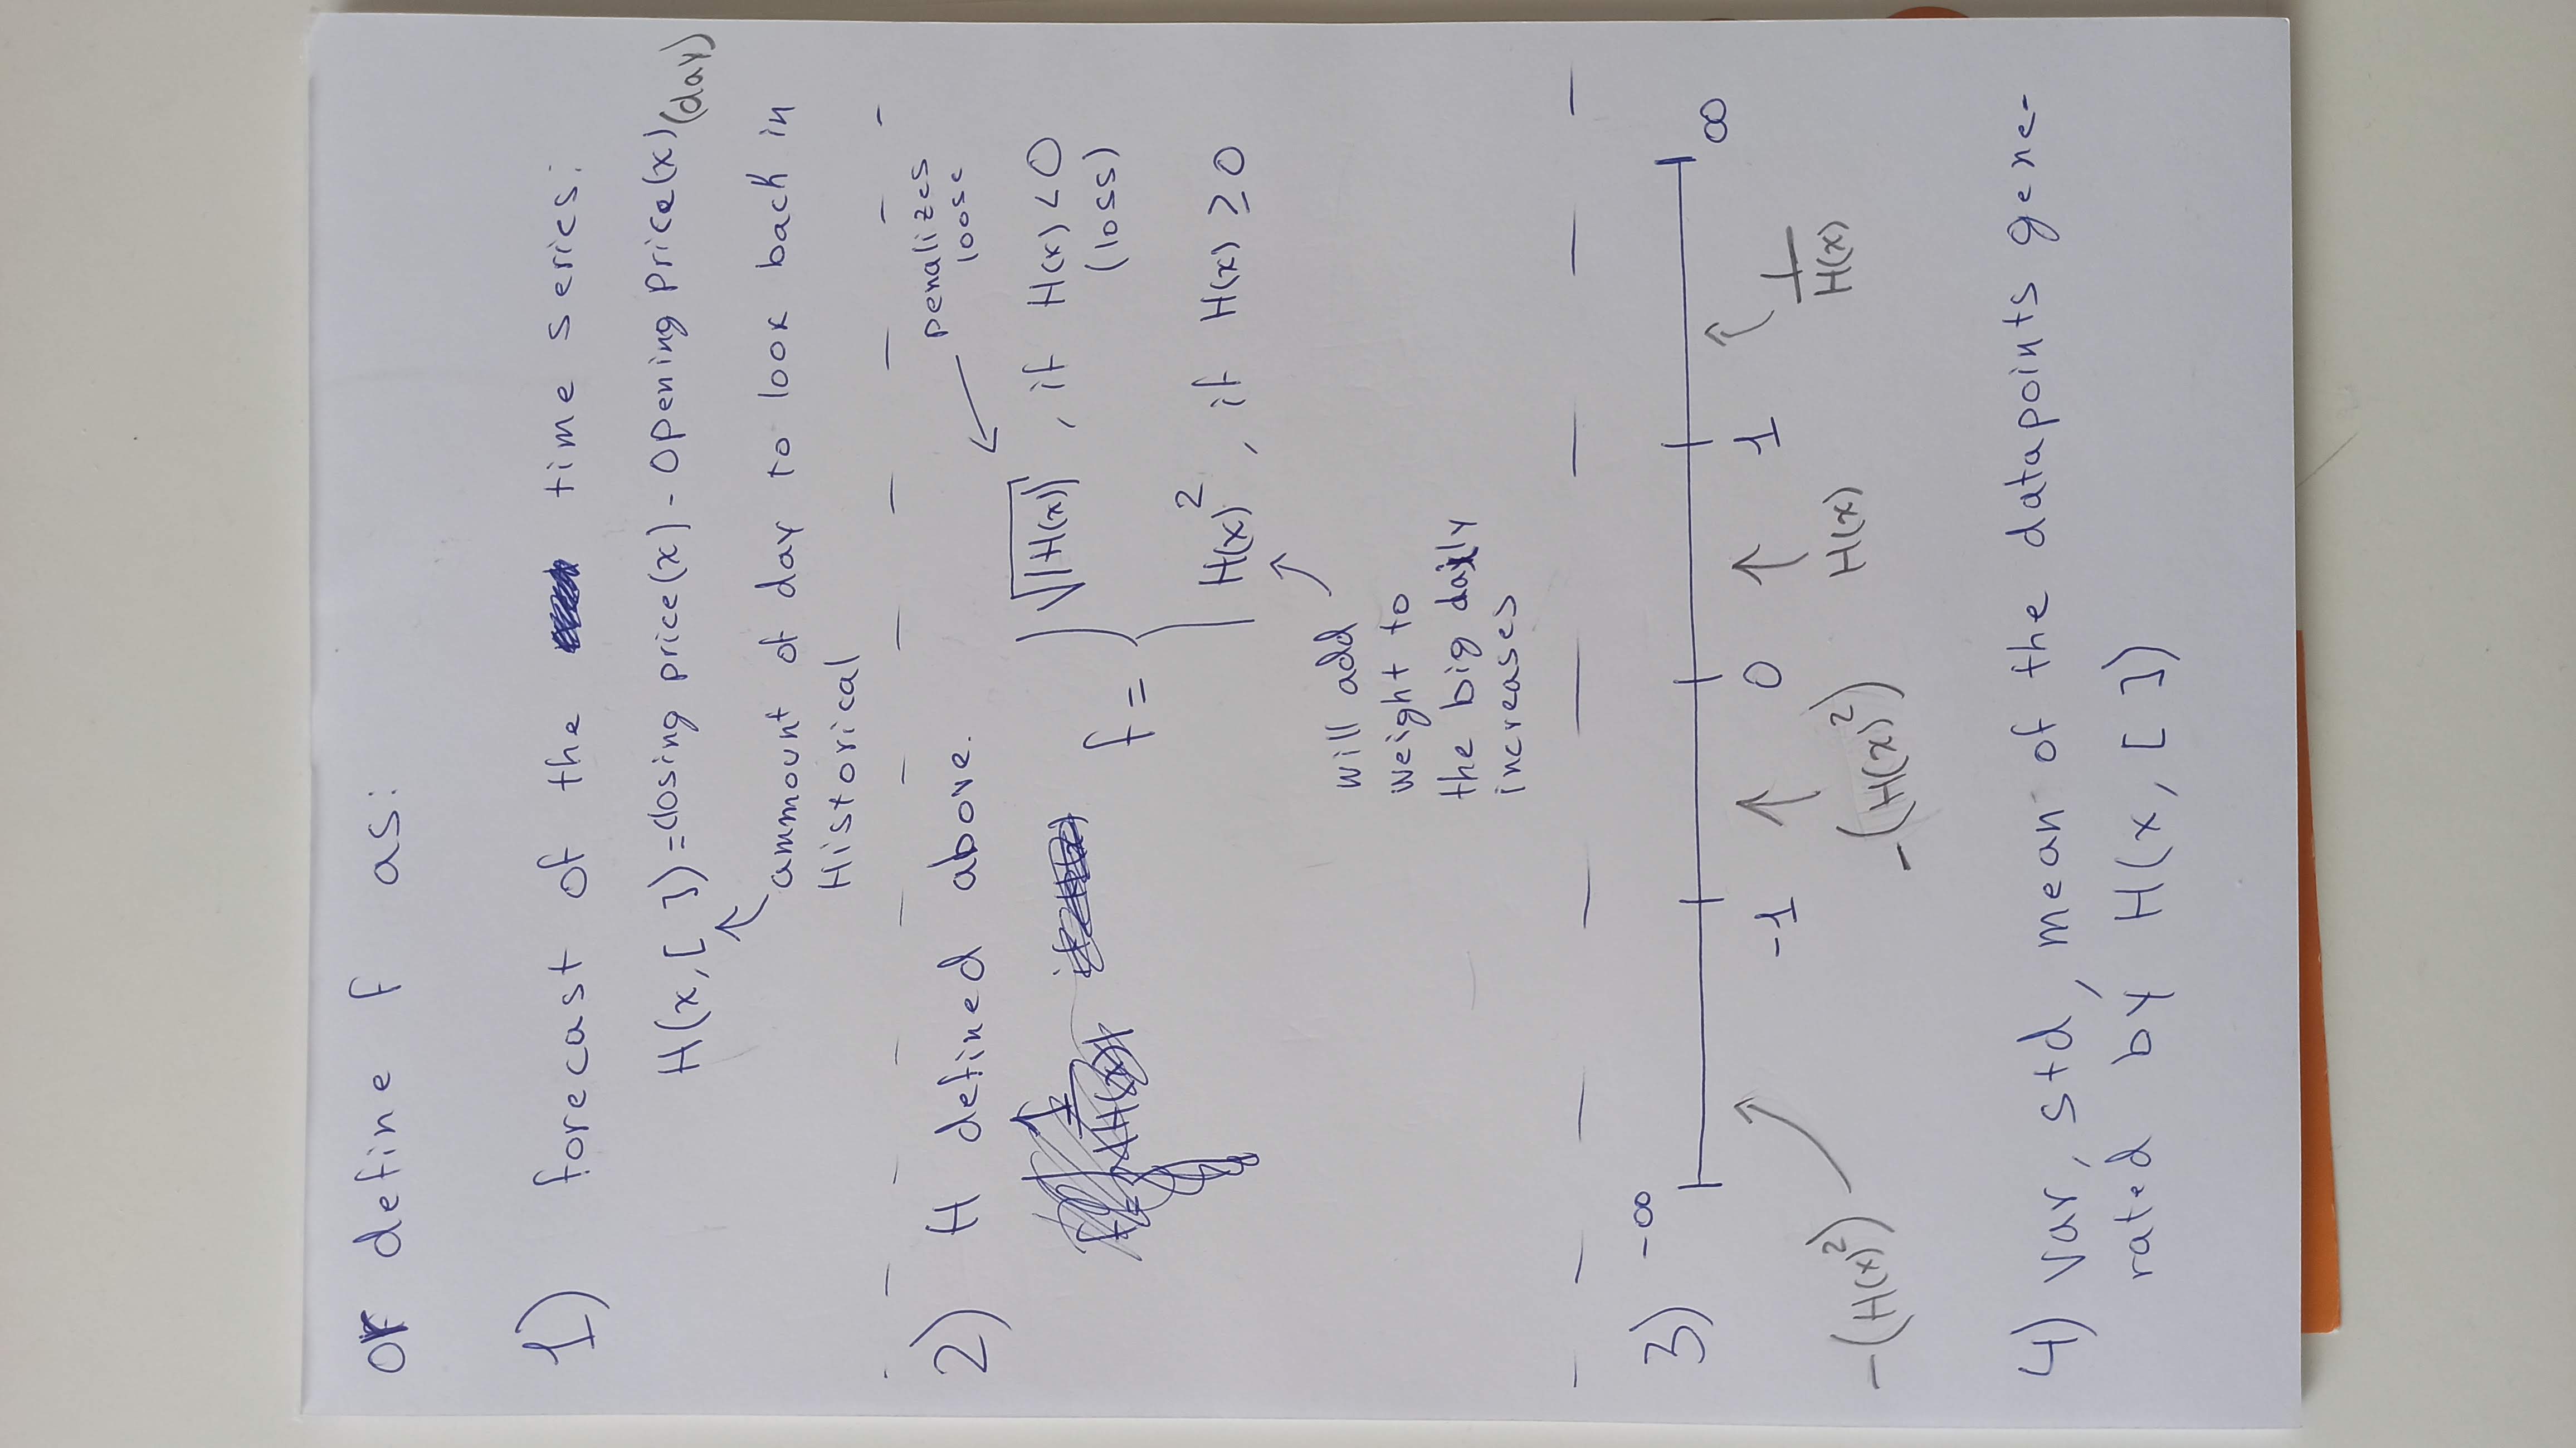 or define f as:
1) forecast of the time series:
H(x, [ ]) = closing price(x) - opening price(x) (day)
ammount of day to look back in
Historical
2) H defined above.
penalizes
loose
f = { √|H(x)| , if H(x) < 0
(loss)
H(x)² , if H(x) ≥ 0
will add
weight to
the big daily
increases
3) -∞ ∞
-1 0 1
-(H(x)²) -(H(x)²) H(x) 1/H(x)
4) var, std, mean of the datapoints gene-
rated by H(x, [ ])